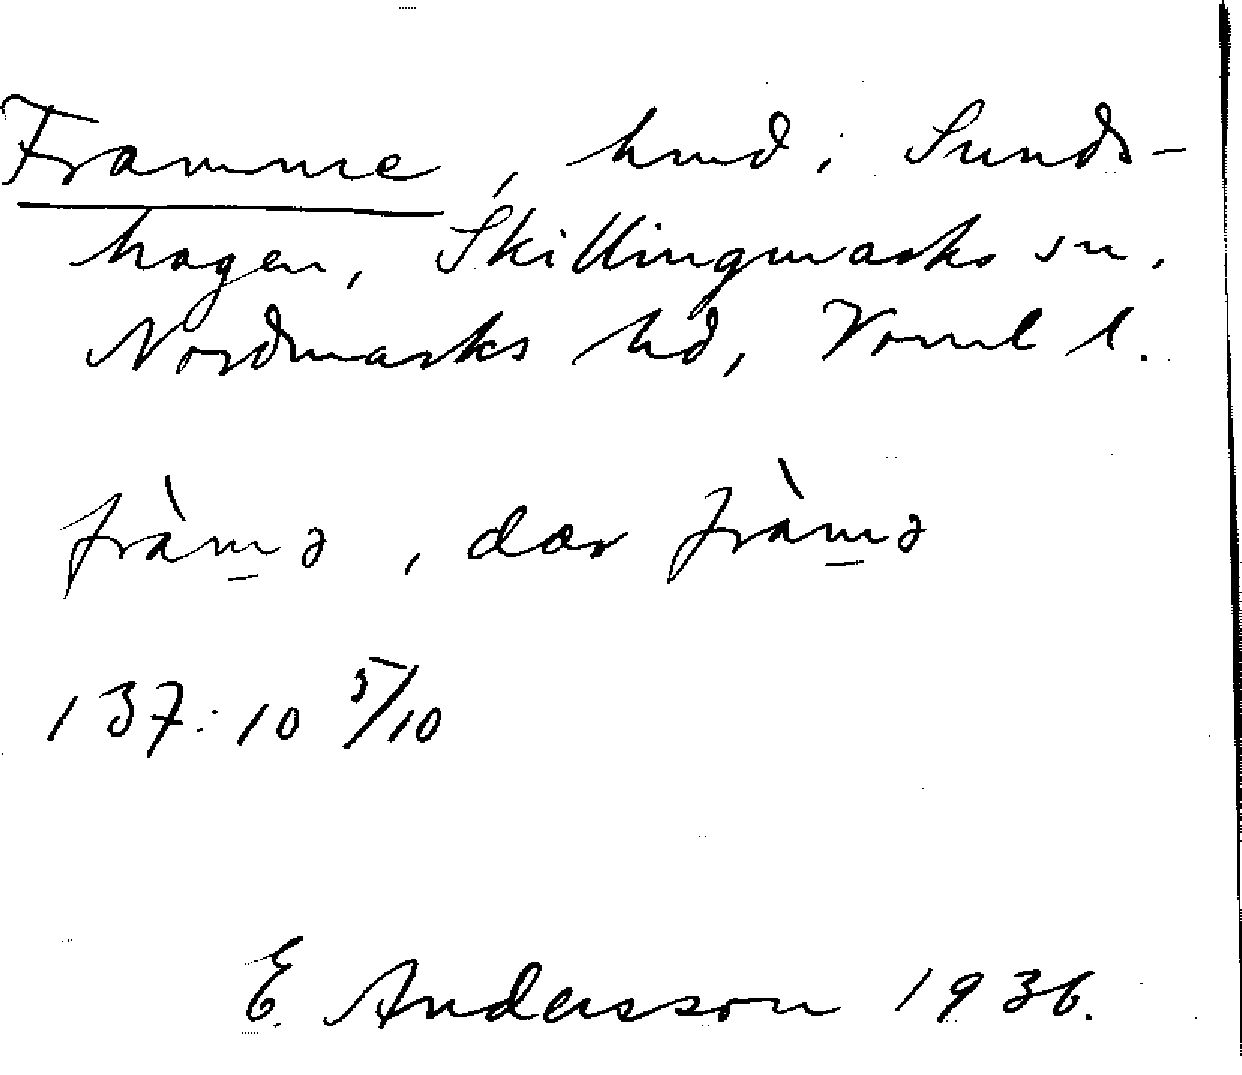 Framme, hund i Sunds-
hagen, Skillingmarks sn.
Nordmarks hd, Värml l.
fràmə, dær fràmə
137:10 5/10
E. Andersson 1936.